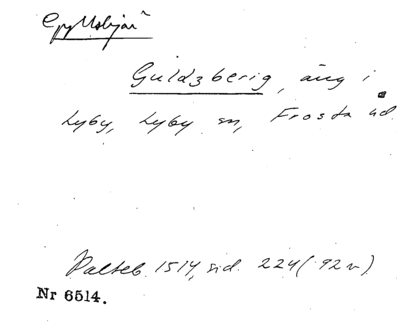 Guldzberig, äng i
Lyby, Lyby sn, Frosta hd.
Palteb. 1514, sid. 224 (92 v)
Nr 6514.